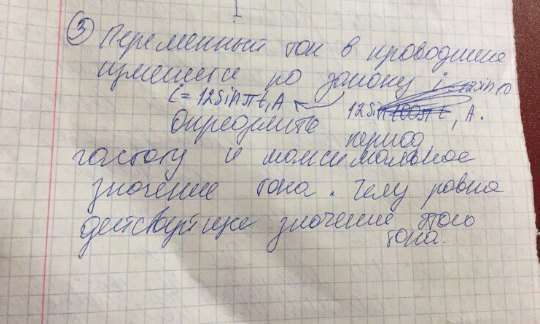 ③ Переменный ток в проводнике
изменяется по закону
i = 12 sin πt, A 12 sin 100πt, A.
определите период,
частоту и максимальное
значение тока. Чему равна
действующее значение этого
тока.